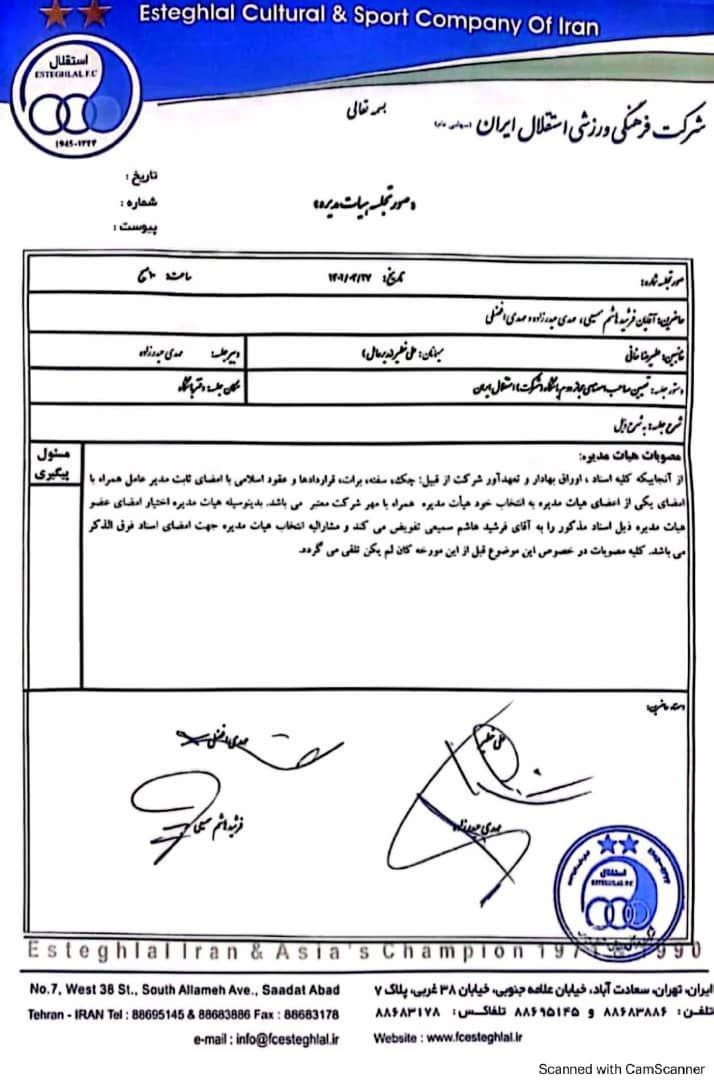 Esteghlal Cultural & Sport Company Of Iran
استقلال
ESTEGHLAL F.C
۱۹۴۵-۱۳۲۴
بسمه تعالی
شرکت فرهنگی ورزشی استقلال ایران (سهامی عام)
تاریخ :
شماره :
پیوست :
«صورتجلسه هیات مدیره»
صورتجلسه شماره: تاریخ: ساعت: ۱۰ صبح
حاضرین: آقایان فرشید هاشم سمیعی، مهدی حیدرزاده و مهدی افضلی
غایبین: علیرضا خانی میهمان: علی خطیر (مدیرعامل) دبیر جلسه: مهدی حیدرزاده
دستور جلسه: تعیین صاحب امضای مجاز دوم باشگاه (شرکت) استقلال ایران مکان جلسه: دفتر باشگاه
شرح جلسه: به شرح ذیل
مصوبات هیات مدیره: مسئول پیگیری
از آنجاییکه کلیه اسناد ، اوراق بهادار و تعهدآور شرکت از قبیل: چک، سفته، برات، قراردادها و عقود اسلامی با امضای ثابت مدیر عامل همراه با
امضای یکی از اعضای هیات مدیره به انتخاب خود هیأت مدیره همراه با مهر شرکت معتبر می باشد. بدینوسیله هیات مدیره اختیار امضای عضو
هیات مدیره ذیل اسناد مذکور را به آقای فرشید هاشم سمیعی تفویض می کند و مشارالیه انتخاب هیات مدیره جهت امضای اسناد فوق الذکر
می باشد. کلیه مصوبات در خصوص این موضوع قبل از این مورخه کان لم یکن تلقی می گردد.
امضاء حاضرین:
علی خطیر مهدی افضلی
مهدی حیدرزاده فرشید هاشم سمیعی
استقلال
ESTEGHLAL F.C
Esteghlal Iran & Asia's Champion 1971 & 1990
ایران، تهران، سعادت آباد، خیابان علامه جنوبی، خیابان ۳۸ غربی، پلاک ۷
تلفن: ۸۸۶۸۳۸۸۶ و ۸۸۶۹۵۱۴۵ تلفاکس: ۸۸۶۸۳۱۷۸
Website : www.fcesteghlal.ir
No.7, West 38 St., South Allameh Ave., Saadat Abad
Tehran - IRAN Tel : 88695145 & 88683886 Fax : 88683178
e-mail : info@fcesteghlal.ir
Scanned with CamScanner